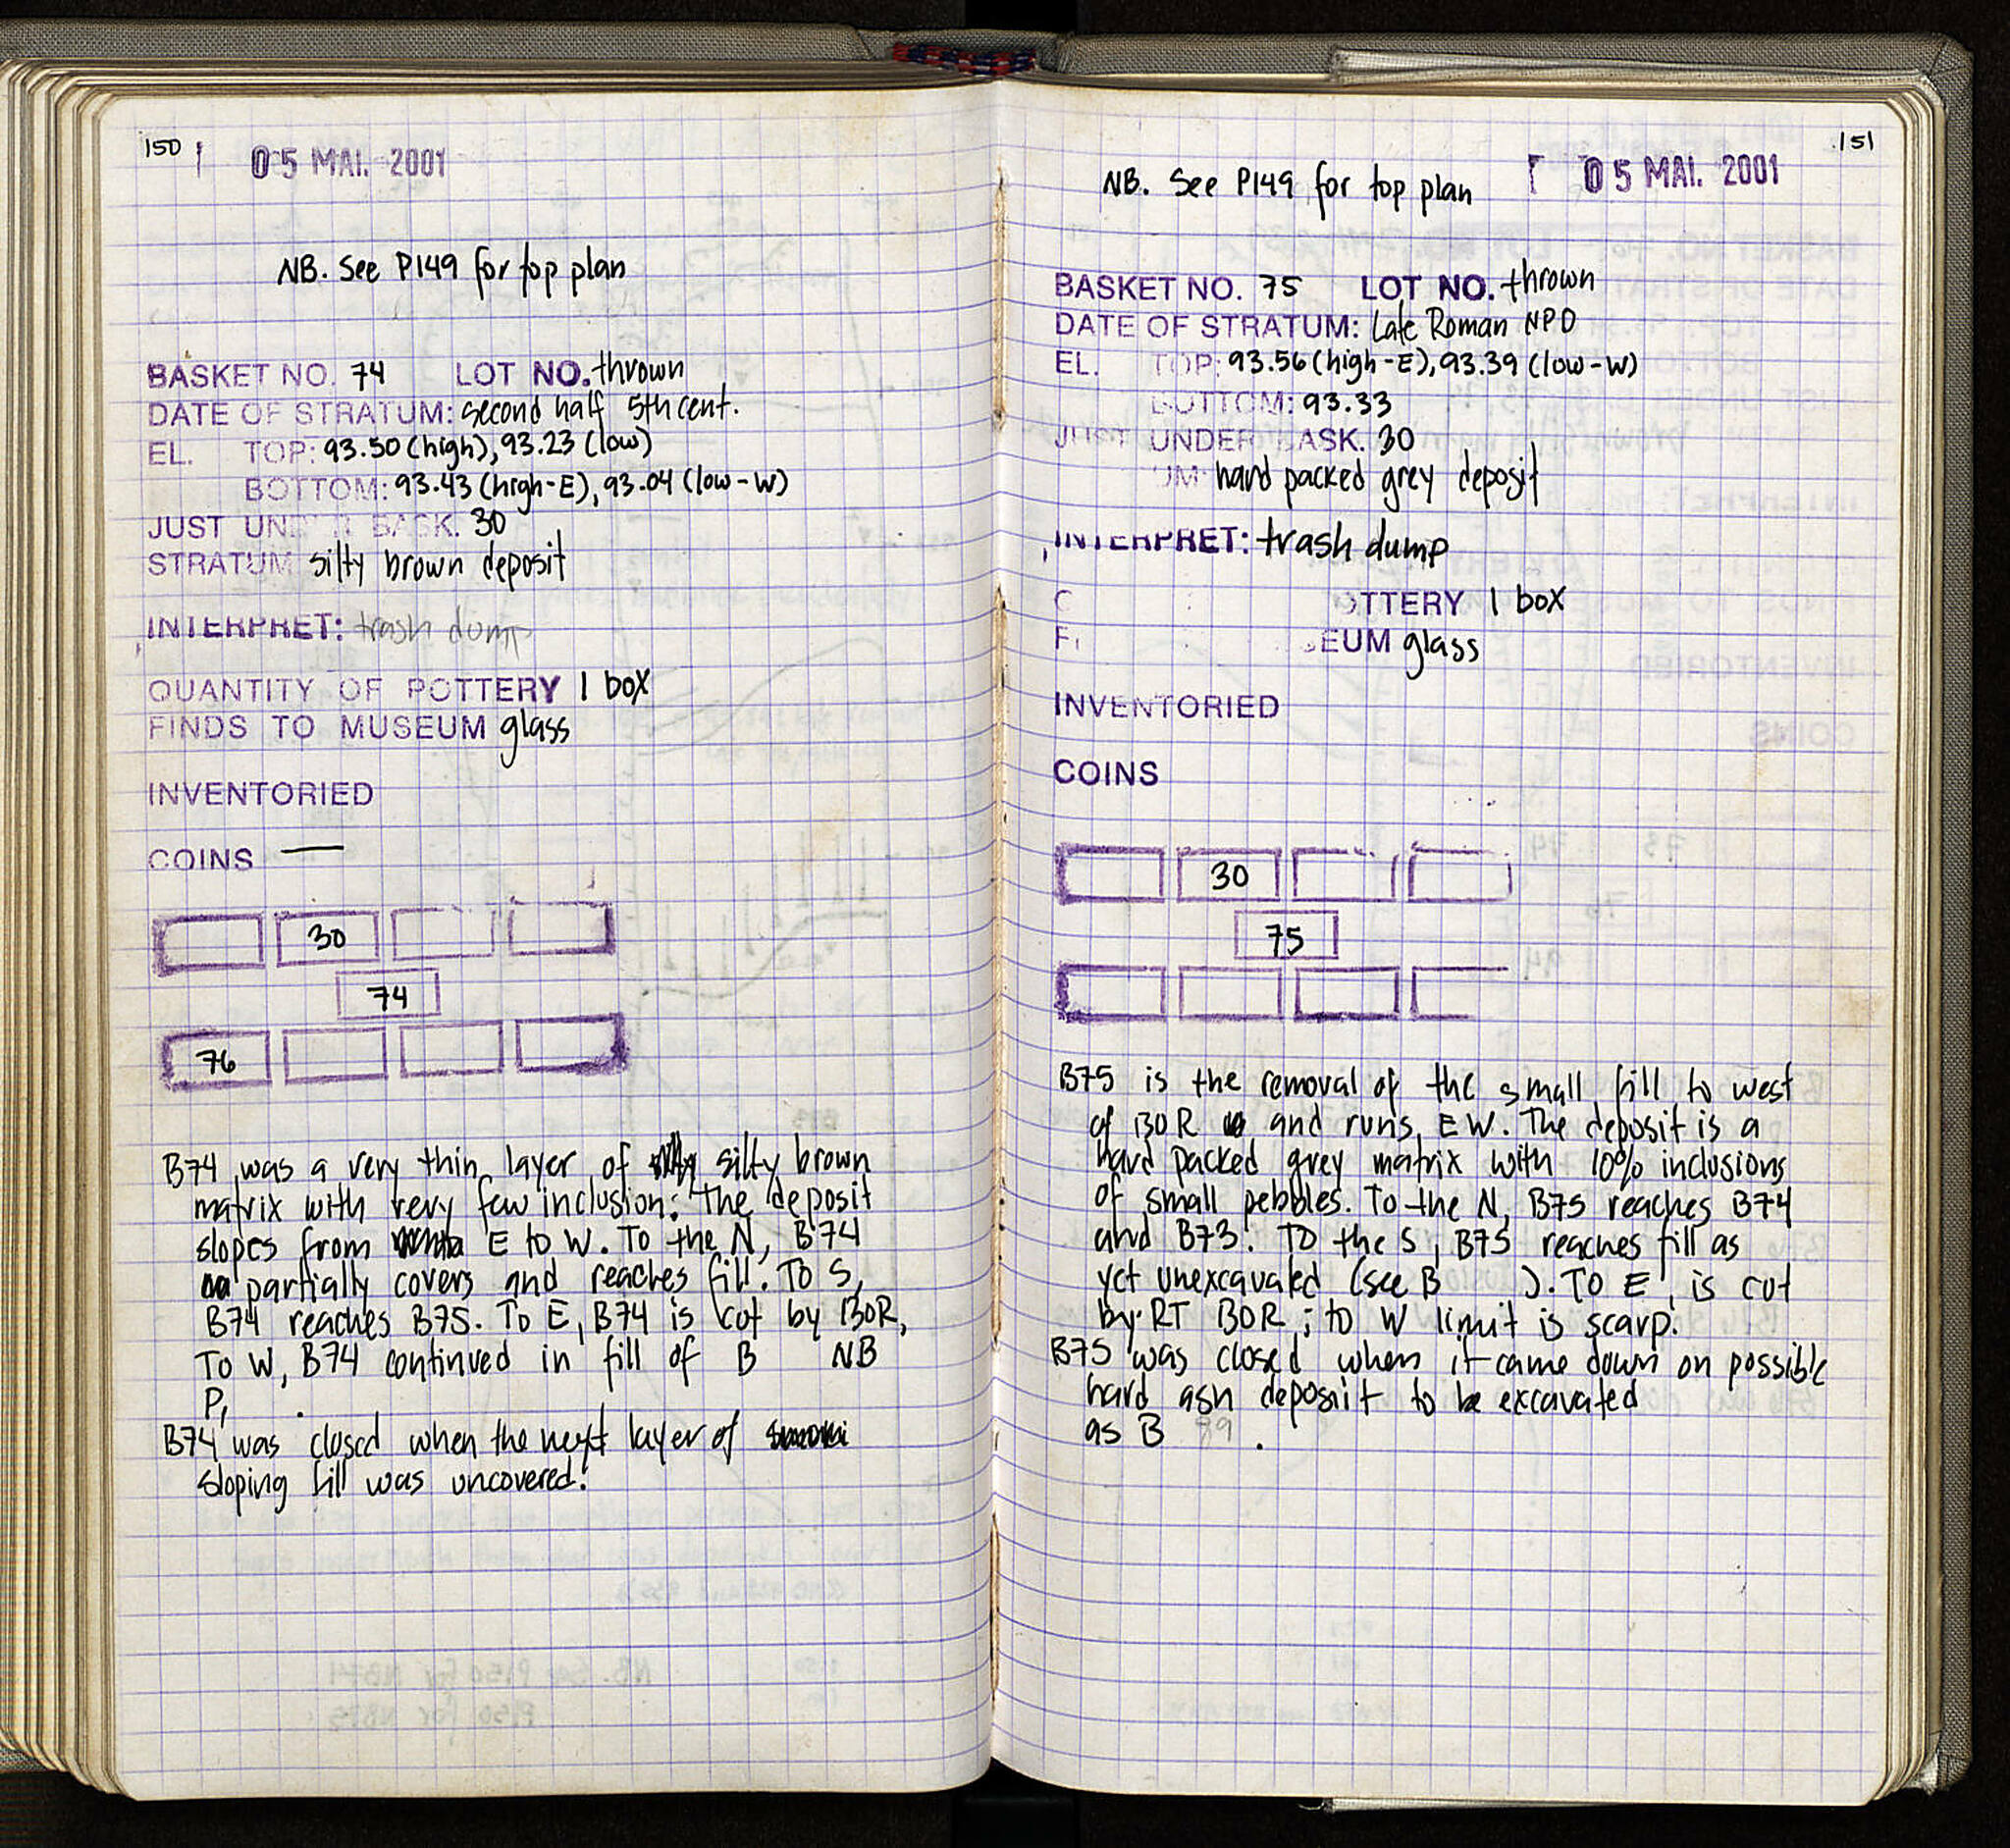 150
05 MAI. 2001
NB. See P149 for top plan
BASKET NO. 74 LOT NO. thrown
DATE OF STRATUM: second half 5th cent.
EL. TOP: 93.50 (high), 93.23 (low)
BOTTOM: 93.43 (high-E), 93.04 (low-W)
JUST UNDER BASK. 30
STRATUM silty brown deposit
INTERPRET: trash dump
QUANTITY OF POTTERY 1 box
FINDS TO MUSEUM glass
INVENTORIED
COINS —
30
74
76
B74 was a very thin layer of silty brown
matrix with very few inclusion. The deposit
slopes from E to W. To the N, B74
partially covers and reaches fill. To S,
B74 reaches B75. To E, B74 is cut by BOR,
To W, B74 continued in fill of B NB
P,        .
B74 was closed when the next layer of
sloping fill was uncovered.
151
NB. See P149 for top plan
05 MAI. 2001
BASKET NO. 75 LOT NO. thrown
DATE OF STRATUM: Late Roman NPD
EL. TOP: 93.56 (high-E), 93.39 (low-W)
BOTTOM: 93.33
JUST UNDER BASK. 30
UM: hard packed grey deposit
INTERPRET: trash dump
OTTERY 1 box
EUM glass
INVENTORIED
COINS
30
75
B75 is the removal of the small fill to west
of BOR and runs EW. The deposit is a
hard packed grey matrix with 10% inclusions
of small pebbles. To the N, B75 reaches B74
and B73. To the S, B75 reaches fill as
yet unexcavated (see B      ). To E, is cut
by RT BOR; to W limit is scarp.
B75 was closed when it came down on possible
hard ash deposiit to be excavated
as B 89 .